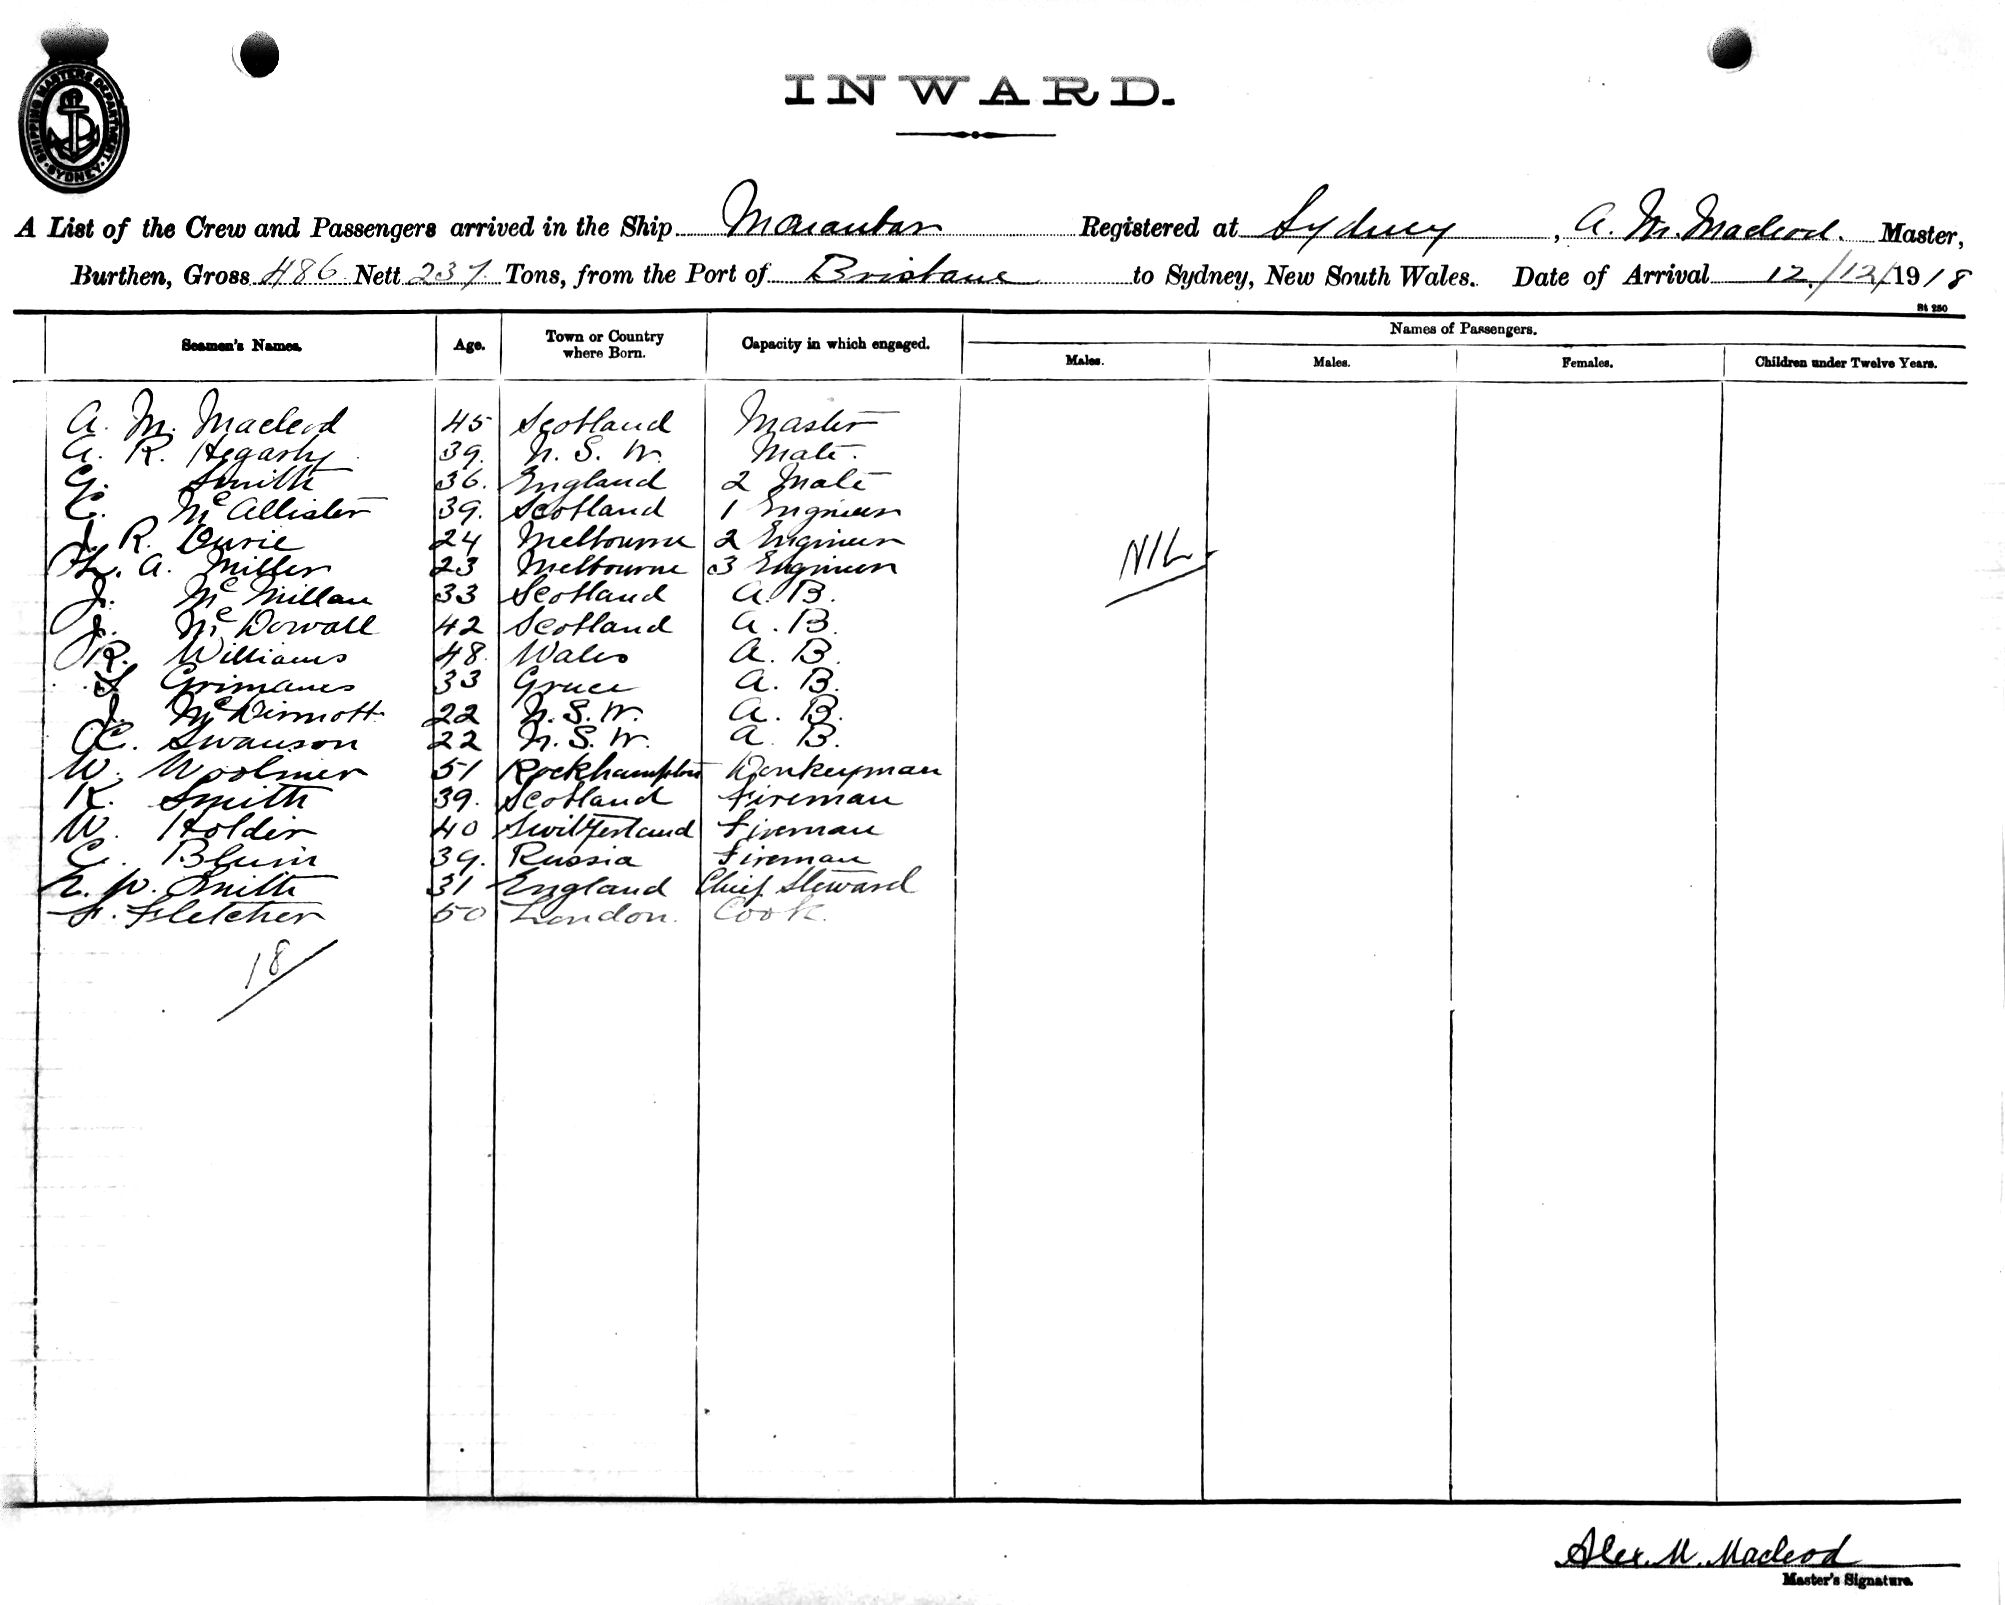 SHIPPING MASTERS DEPARTMENT. SYDNEY
INWARD.
A List of the Crew and Passengers arrived in the Ship Registered at Sydney, A. M. Macleod. Master,
Burthen, Gross 486 Nett 237 Tons, from the Port of Brisbane to Sydney, New South Wales. Date of Arrival 12/12/1918
St 280
Seamen's Names. Age. Town or Country where Born. Capacity in which engaged. Names of Passengers.
Males. Males. Females. Children under Twelve Years.
A. M. Macleod 45 Scotland Master
A. R. Hegarty 39. N. S. W. Mate.
G. Smith 36. England 2 Mate
McAllister 39. Scotland 1 Engineer
J. R. Durie 24 Melbourne 2 Engineer
A. Miller 23 Melbourne 3 Engineer
NIL.
J. McMillan 33 Scotland A. B.
J. McDowall 42 Scotland A. B.
R. Williams 48. Wales A. B.
S Grimanes 33 Greece A. B.
J. McDermott 22 N. S. W. A. B.
C. Swanson 22 N. S. W. A. B.
W. Woolmer 51 Rockhampton Donkeyman
R. Smith 39. Scotland Fireman
W. Holder 40 Switzerland Fireman
C. Blum 39. Russia Fireman
W. Smith 31 England Chief Steward
F. Fletcher 50 London. Cook.
18
Alex. M. Macleod
Master's Signature.